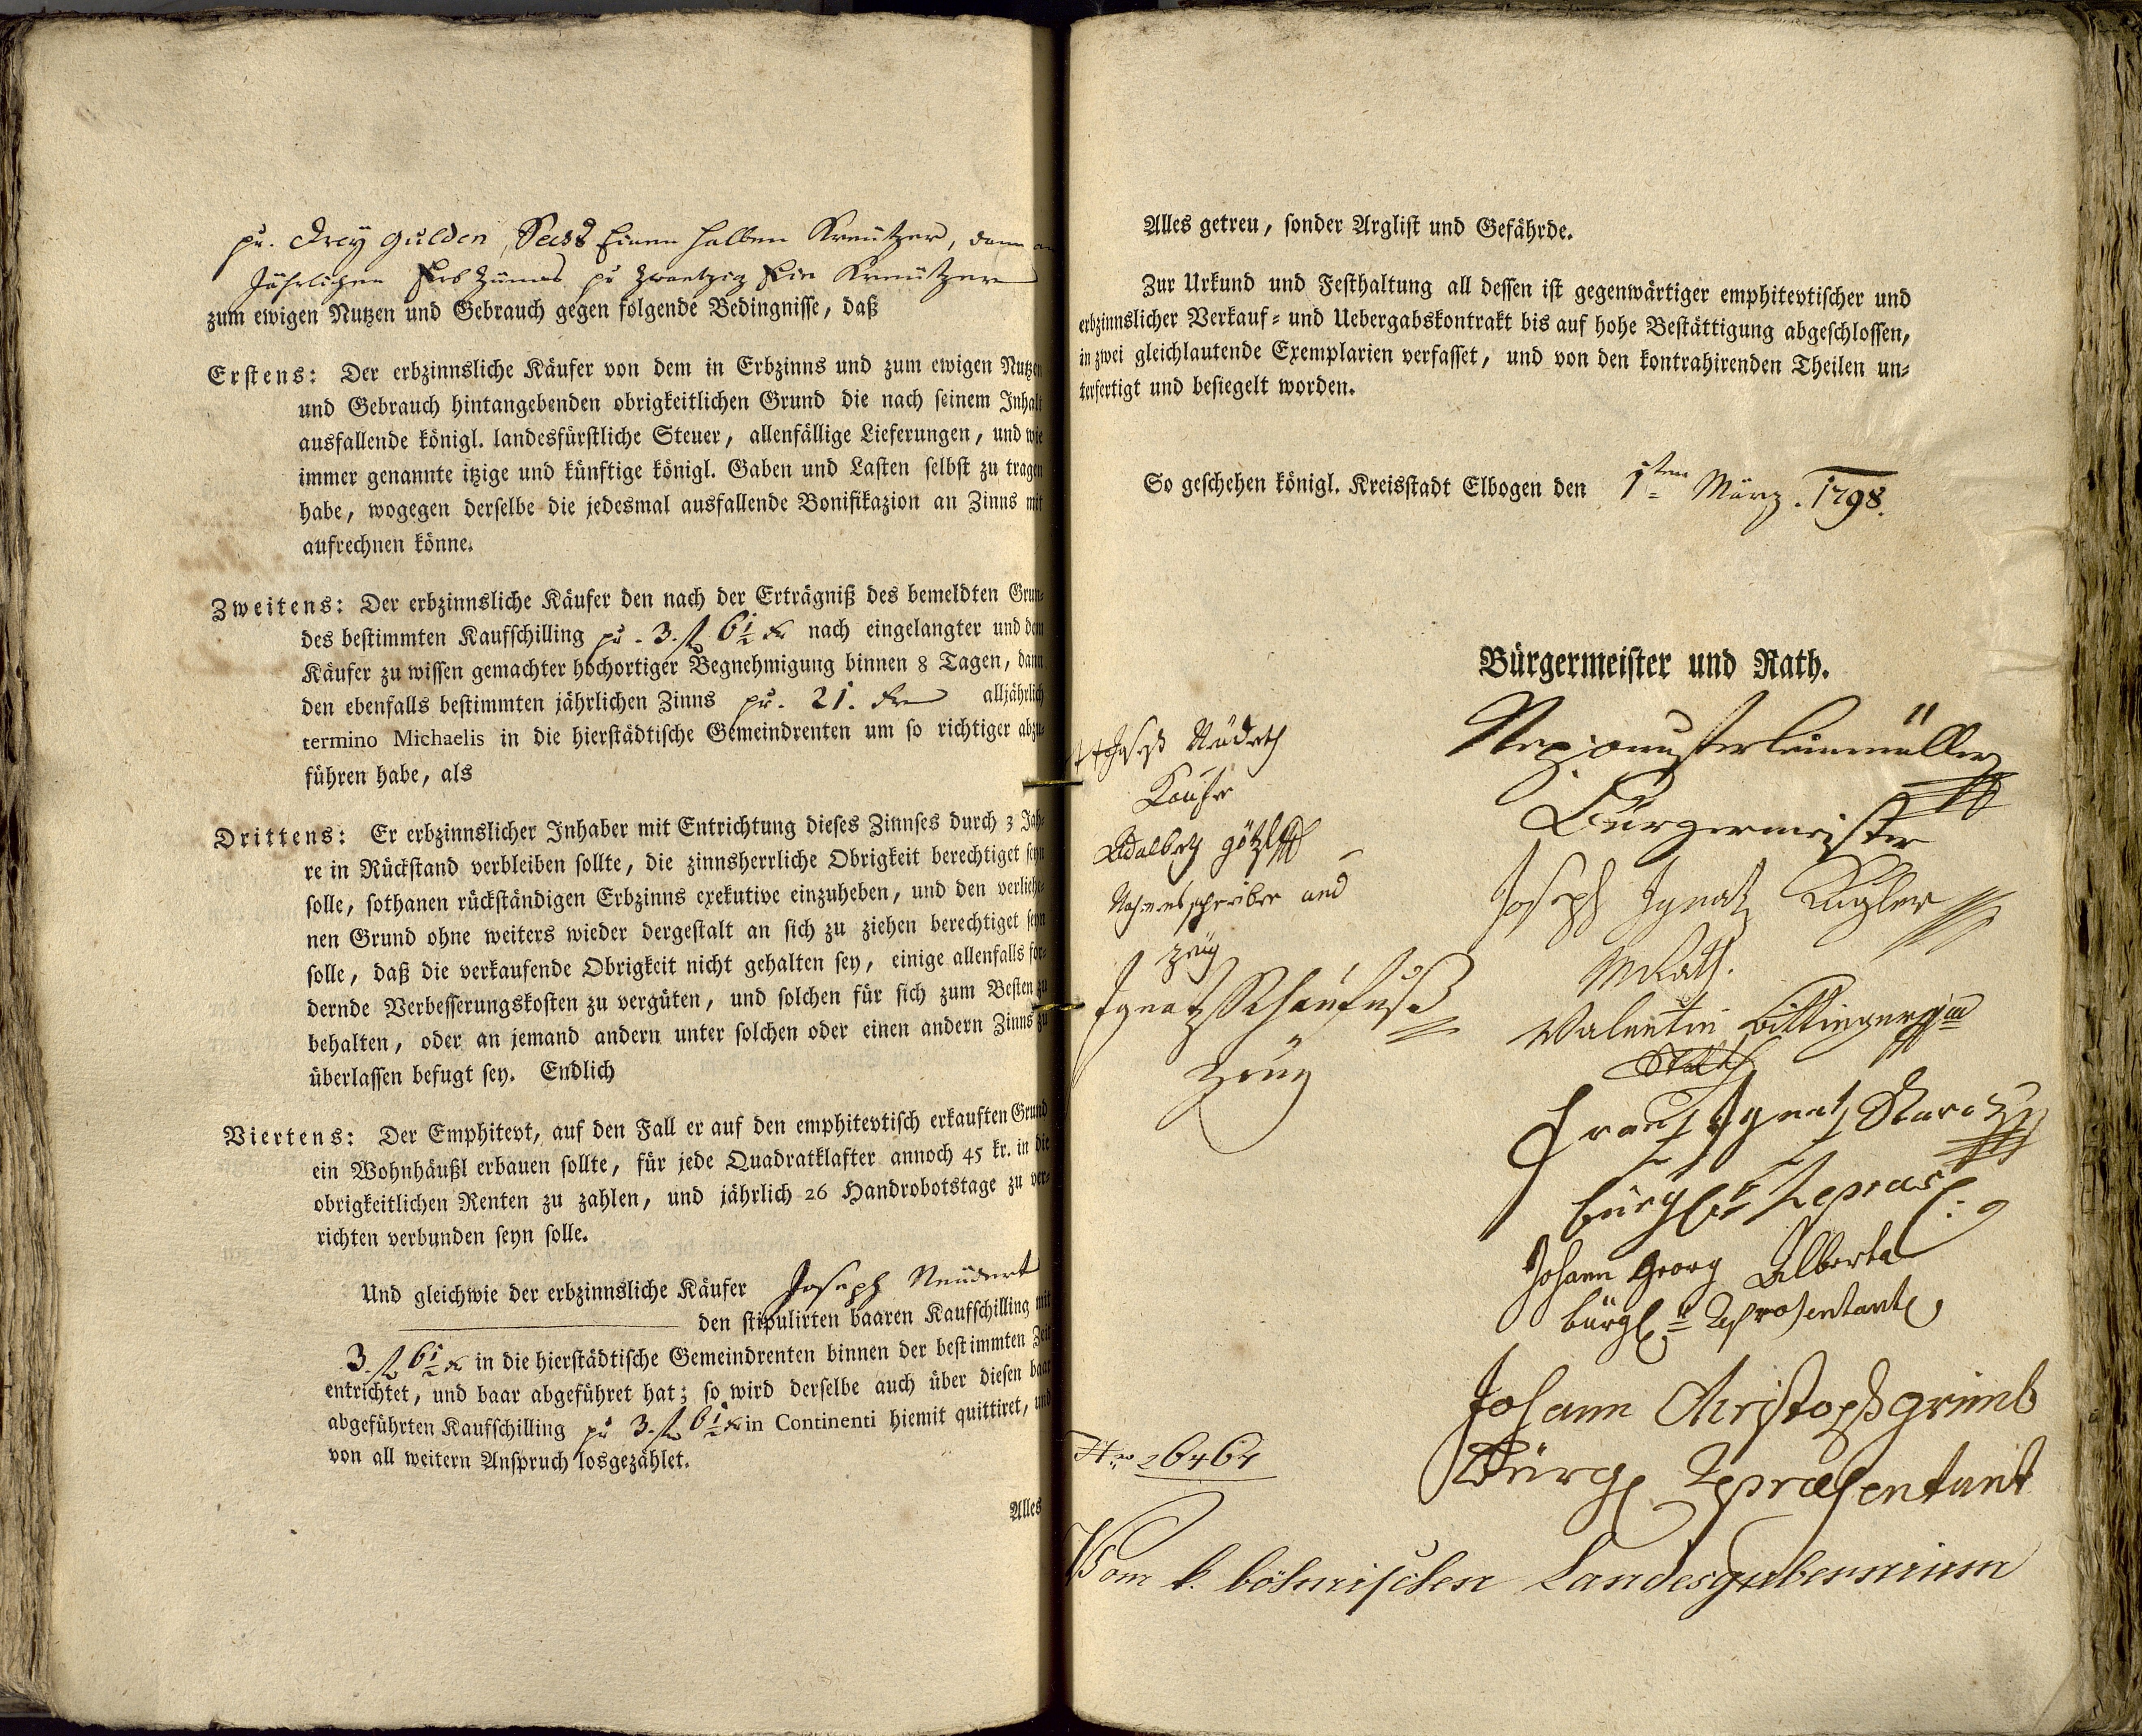 pr. drey gulden, Sechs Einen halben Kreützer, dann an
Jährlichen Erb Zünnes pr Zwantzig Ein Kreützer
zum ewigen Nutzen und Gebrauch gegen folgende Bedingnisse, daß
Erstens: Der erbzinnsliche Käufer von dem in Erbzinns und zum ewigen Nutzen
und Gebrauch hintangebenden obrigkeitlichen Grund die nach seinem Inhalt
ausfallende königl. landesfürstliche Steuer, allenfällige Lieferungen, und wie
immer genannte itzige und künftige königl. Gaben und Lasten selbst zu tragen
habe, wogegen derselbe die jedesmal ausfallende Bonifikazion an Zinns mit
aufrechnen könne.
Zweitens: Der erbzinnsliche Käufer den nach der Erträgniß des bemeldten Grun-
des bestimmten Kaufschilling pr. 3. f 6 1/2 kr nach eingelangter und dem
Käufer zu wissen gemachter hochortiger Begnehmigung binnen 8 Tagen, dann
den ebenfalls bestimmten jährlichen Zinns pr. 21. kr alljährlich
termino Michaelis in die hierstädtische Gemeindrenten um so richtiger abzu-
führen habe, als
Drittens: Er erbzinnslicher Inhaber mit Entrichtung dieses Zinnses durch 3 Jah-
re in Rückstand verbleiben sollte, die zinnsherrliche Obrigkeit berechtiget seyn
solle, sothanen rückständigen Erbzinns exekutive einzuheben, und den verliehe-
nen Grund ohne weiters wieder dergestalt an sich zu ziehen berechtiget seyn
solle, daß die verkaufende Obrigkeit nicht gehalten sey, einige allenfalls for-
dernde Verbesserungskosten zu vergüten, und solchen für sich zum Besten zu
behalten, oder an jemand andern unter solchen oder einen andern Zinns zu
überlassen befugt sey. Endlich
Viertens: Der Emphitevt, auf den Fall er auf den emphitevtisch erkauften Grund
ein Wohnhäußl erbauen sollte, für jede Quadratklafter annoch 45 kr. in die
obrigkeitlichen Renten zu zahlen, und jährlich 26 Handrobotstage zu ver-
richten verbunden seyn solle.
Und gleichwie der erbzinnsliche Käufer Joseph Neüdert
den stipulirten baaren Kaufschilling mit
3. f 6 1/2 kr in die hierstädtische Gemeindrenten binnen der bestimmten Zeit
entrichtet, und baar abgeführet hat; so wird derselbe auch über diesen baar
abgeführten Kaufschilling pr 3. f 6 1/2 kr in Continenti hiemit quittiret, und
von all weitern Anspruch losgezählet.
Alles
Alles getreu, sonder Arglist und Gefährde.
Zur Urkund und Festhaltung all dessen ist gegenwärtiger emphitevtischer und
erbzinnslicher Verkauf- und Uebergabskontrakt bis auf hohe Bestättigung abgeschlossen,
in zwei gleichlautende Exemplarien verfasset, und von den kontrahirenden Theilen un-
terfertigt und besiegelt worden.
So geschehen königl. Kreisstadt Elbogen den 1sten März. 1798.
Bürgermeister und Rath.
Bürgermeister
Joseph Ignatz
Valentin
Frantz Ignatz
bürgl.r Repräs:
Johann Georg Alberta
bürgl.r Representant
Johann Christoph grimb
Bürgl Representant
+++ Joseph
Käufer
Adalbert götzl
Nahmensschreiber und
Zeüg
Ignatz Schaufuß
Zeüg
Nro 26464
Vom k. böhmischen Landesgubernium